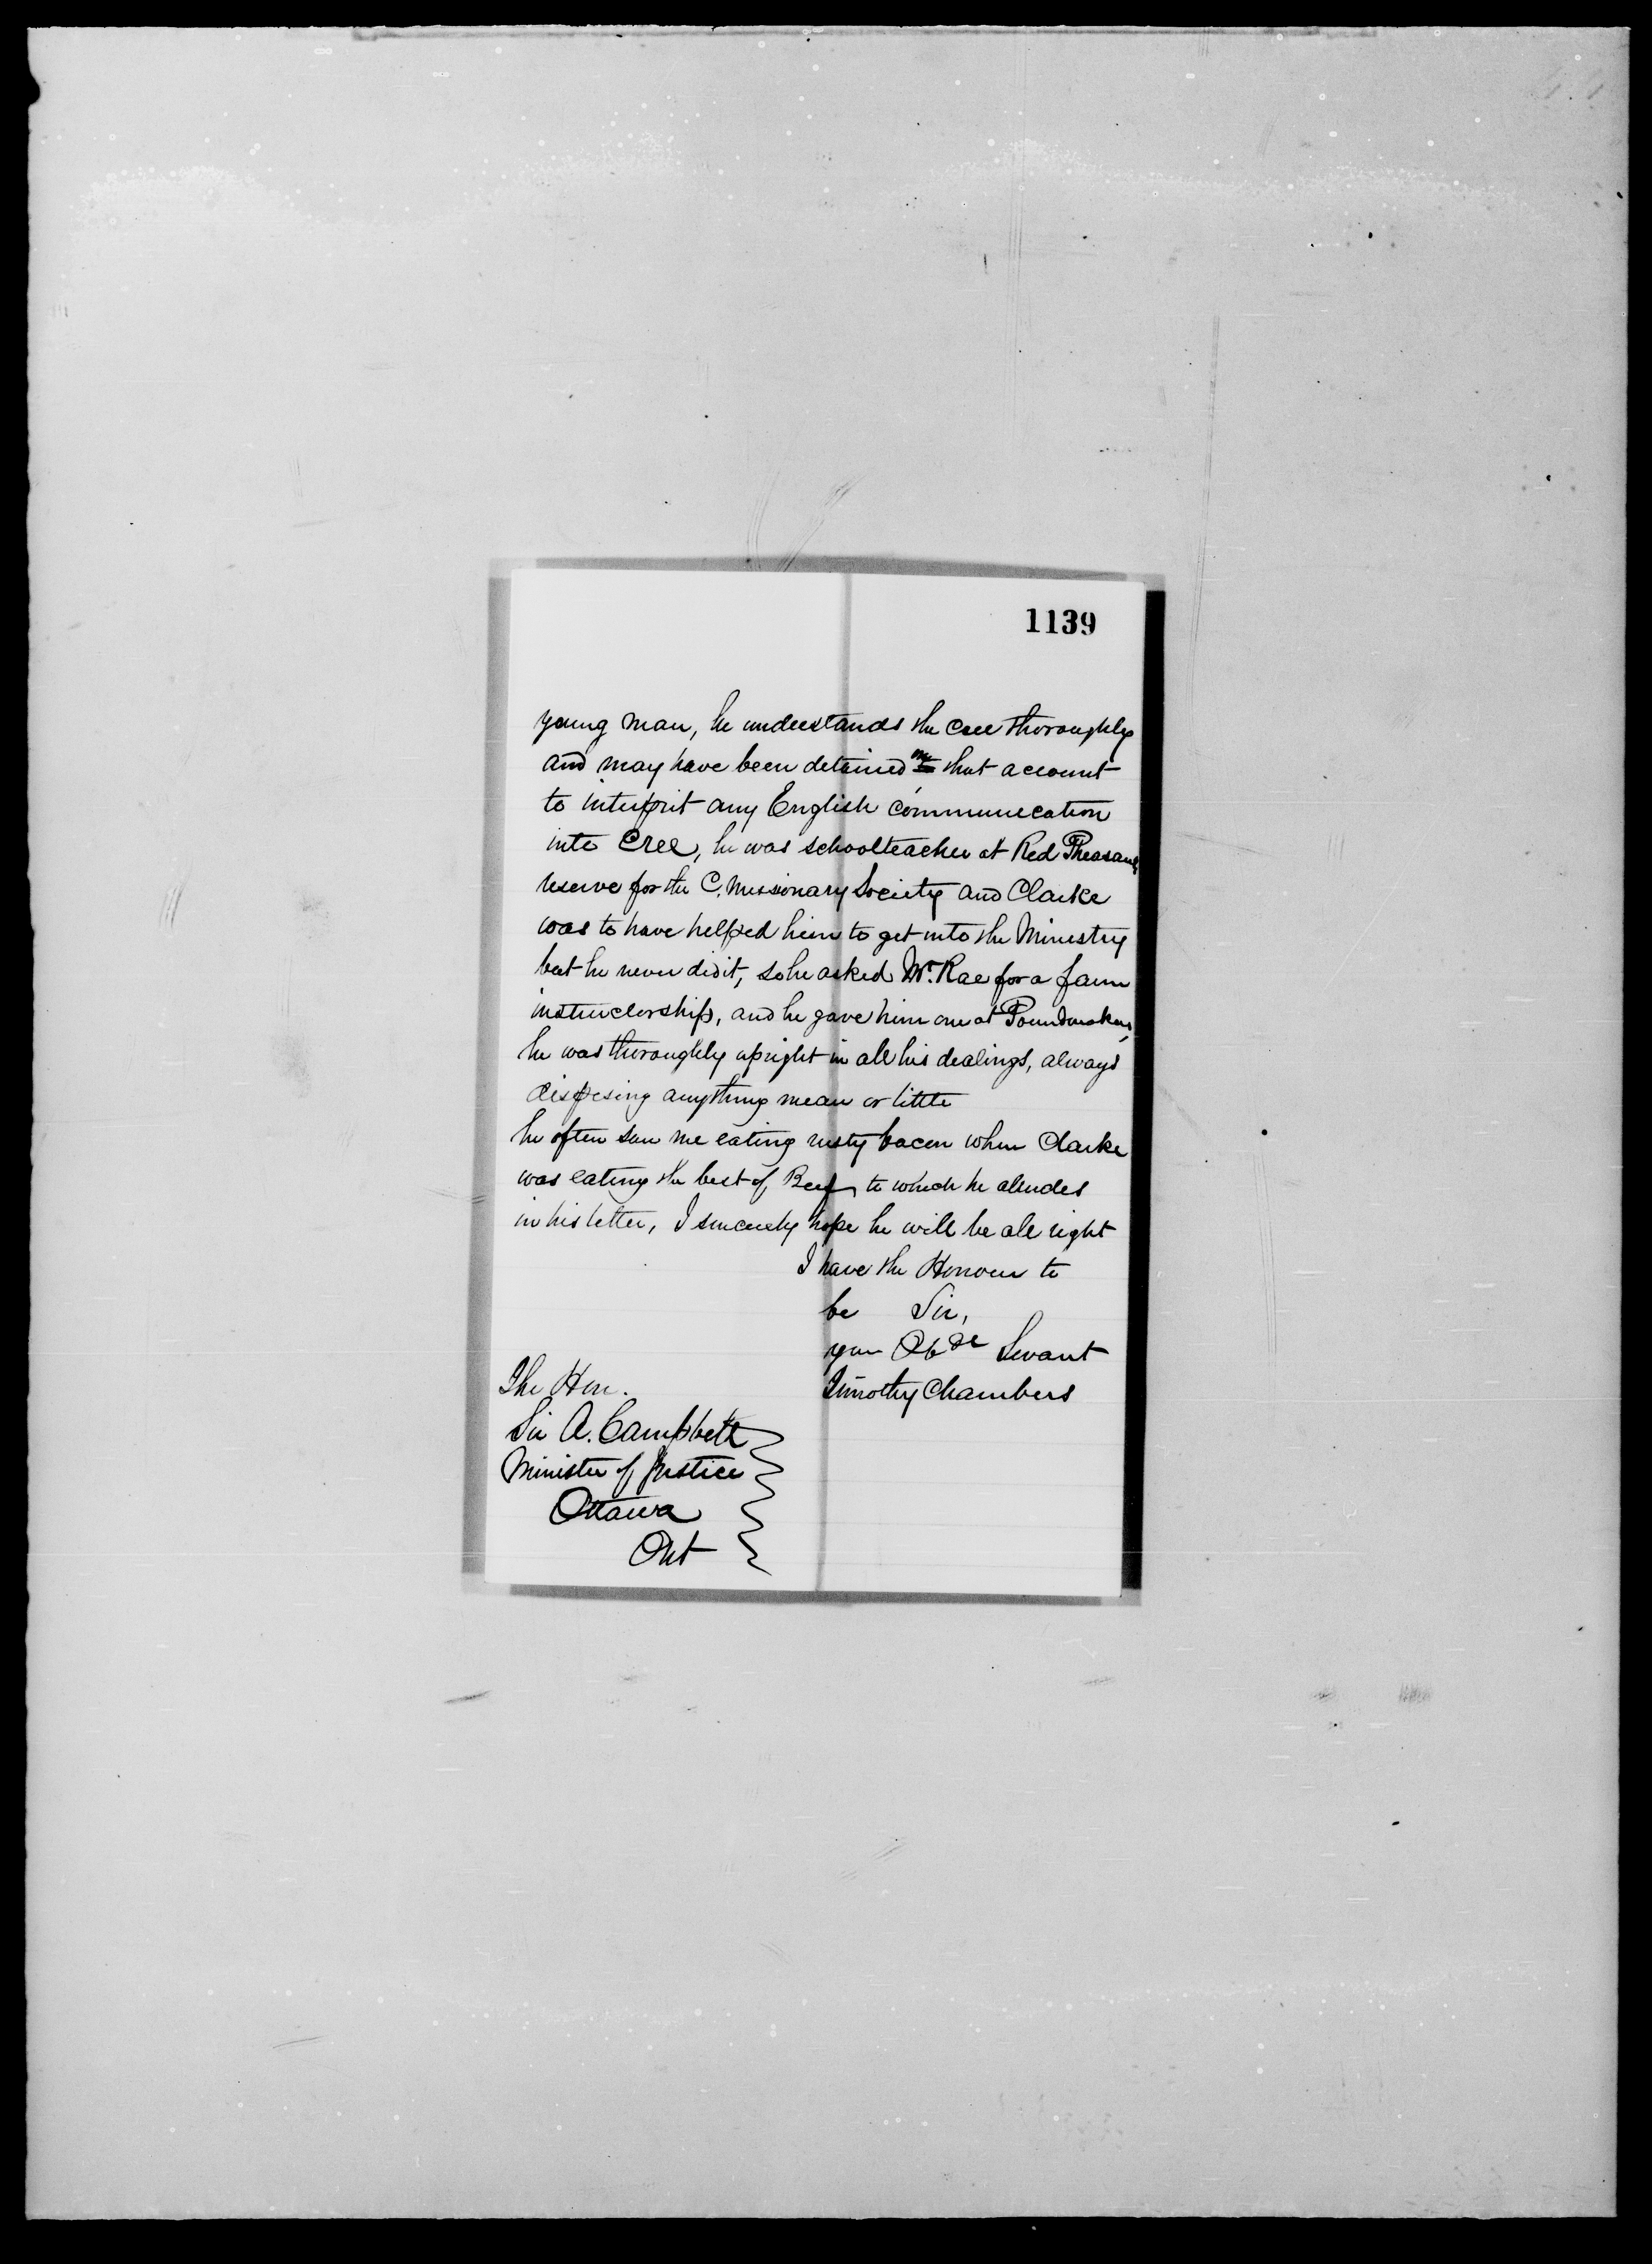 1139
young man, he understands the Cree thoroughly
and may have been detained on that account
to interprit any English communecation
into Cree, he was schoolteacher at Red Pheasants
reserve for the C. Missionary Society and Clarke
was to have helped him to get into the Ministry
but he never did it, so he asked Mr. Rae for a farm
instructorship, and he gave him one at Poundmakers,
he was thuroughly upright in all his dealings, always
dispising anything mean or little
he often saw me eating rusty bacon when Clarke
was eating the best of Beef to which he alludes
in his letter, I sincerely hope he will be all right
I have the Honour to
be Sir,
your Obdt Servant
Timothy Chambers
The Hon.
Sir A. Campbell
Minister of Justice
Ottawa
Ont